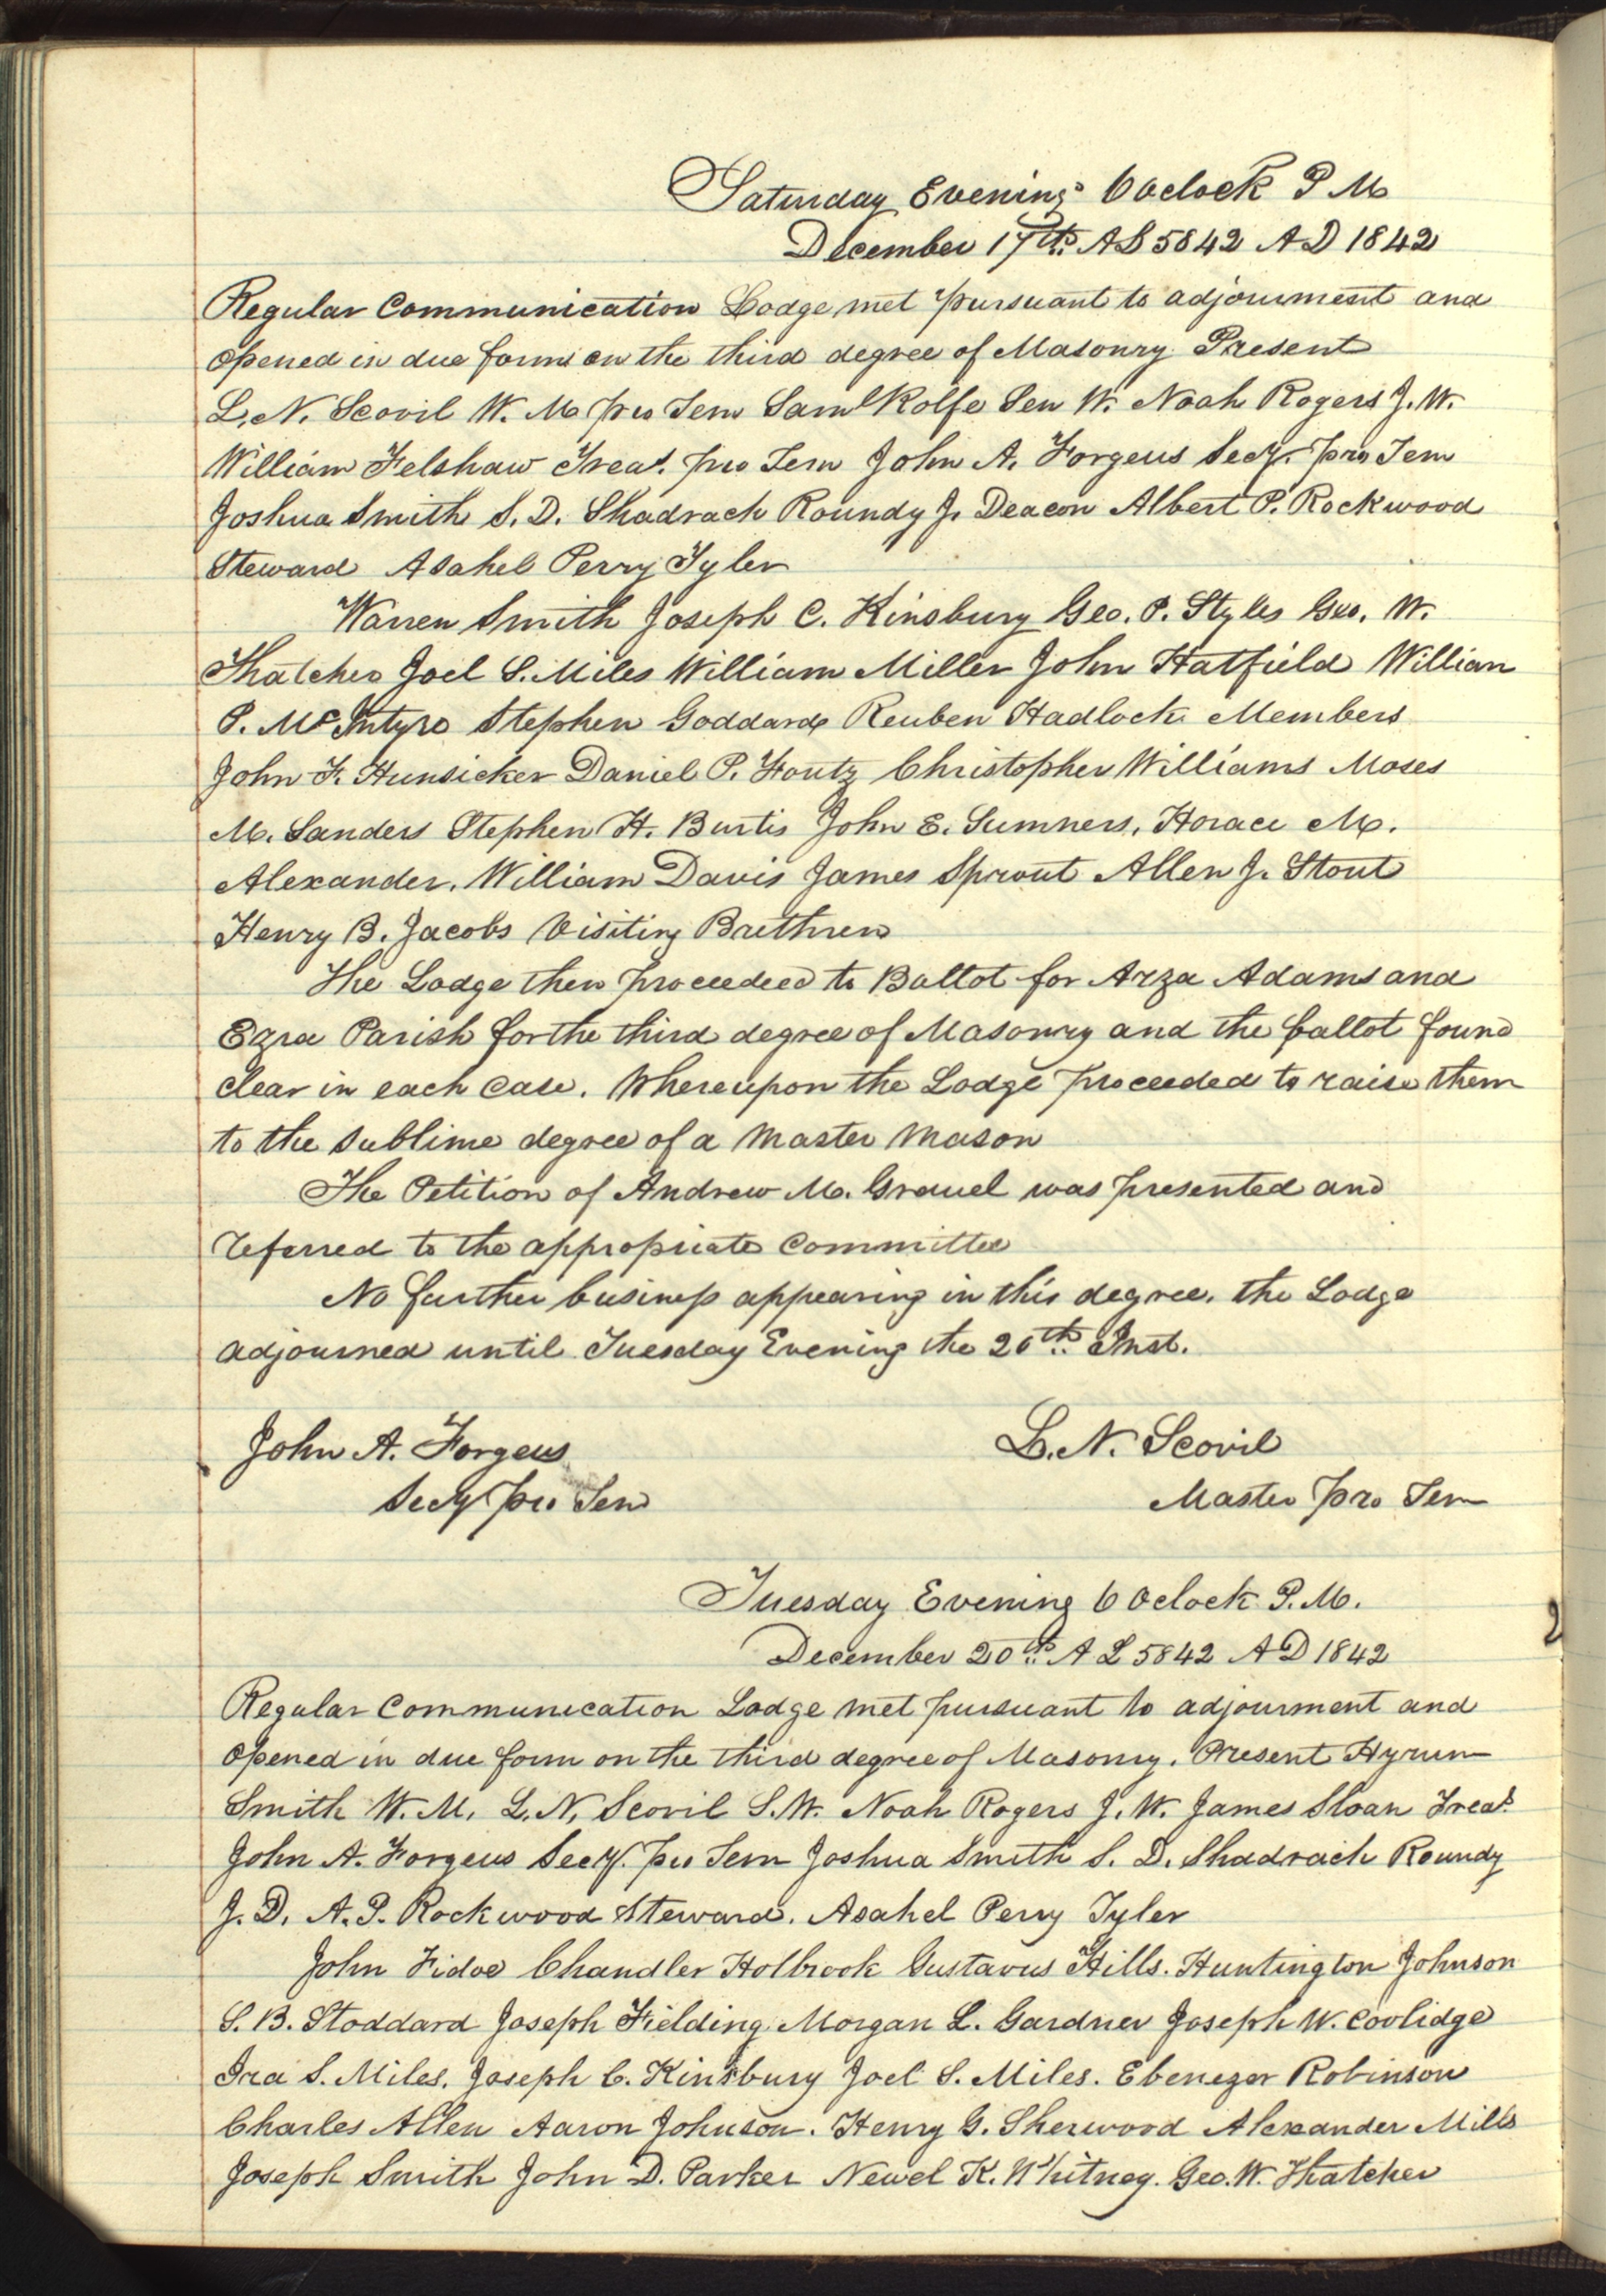 Saturday Evening 6 Oclock P M
December 17th AL 5842 AD 1842
Regular Communication Lodge met pursuant to adjournment and
opened in due form on the third degree of Masonry Present
L. N. Scovil W. M pro Tem Saml Rolfe Sen W. Noah Rogers J. W.
William Felshaw Treas. pro Tem John A. Forgeus Secy. pro Tem
Joshua Smith S. D. Shadrach Roundy J. Deacon Albert P. Rockwood
Steward Asahel Perry Tyler
Warren Smith Joseph C. Kinsbury Geo. P. Styles Geo. W.
Thatcher Joel S. Miles William Miller John Hatfield William
P. McIntyre Stephen Goddard Reuben Hadlock Members
John F. Hunsicker Daniel P. Foutz Christopher Williams Moses
M. Sanders Stephen H. Burtis John E. Sumners, Horace M.
Alexander. William Davis James Sprout Allen J. Stout
Henry B. Jacobs Visiting Brethren
The Lodge then proceeded to Ballot for Arza Adams and
Ezra Parish for the third degree of Masonry and the ballot found
clear in each case. Whereupon the Lodge proceeded to raise them
to the sublime degree of a Master Mason
The Petition of Andrew M. Gravel was presented and
referred to the appropriate Committee
No further business appearing in this degree. the Lodge
adjourned until Tuesday Evening the 20th Inst.
John A. Forgeus L. N. Scovil
Secy pro Tem Master pro Tem
Tuesday Evening 6 Oclock P. M.
December 20th A L 5842 A D 1842
Regular Communication Lodge met pursuant to adjourment and
opened in due form on the third degree of Masonry. Present Hyrum
Smith W. M. L. N. Scovil S. W. Noah Rogers J. W. James Sloan Treas.
John A. Forgeus Secy. pro Tem Joshua Smith S. D. Shadrach Roundy
J. D. A. P. Rockwood Steward. Asahel Perry Tyler
John Fidoe Chandler Holbrook Gustavus Hills. Huntington Johnson
S. B. Stoddard Joseph Fielding Morgan L. Gardner Joseph W. Coolidge
Ira S. Miles. Joseph C. Kinsbury Joel S. Miles. Ebenezer Robinson
Charles Allen Aaron Johnson. Henry G. Sherwood Alexander Mills
Joseph Smith John D. Parker Newel K. Whitney. Geo. W. Thatcher